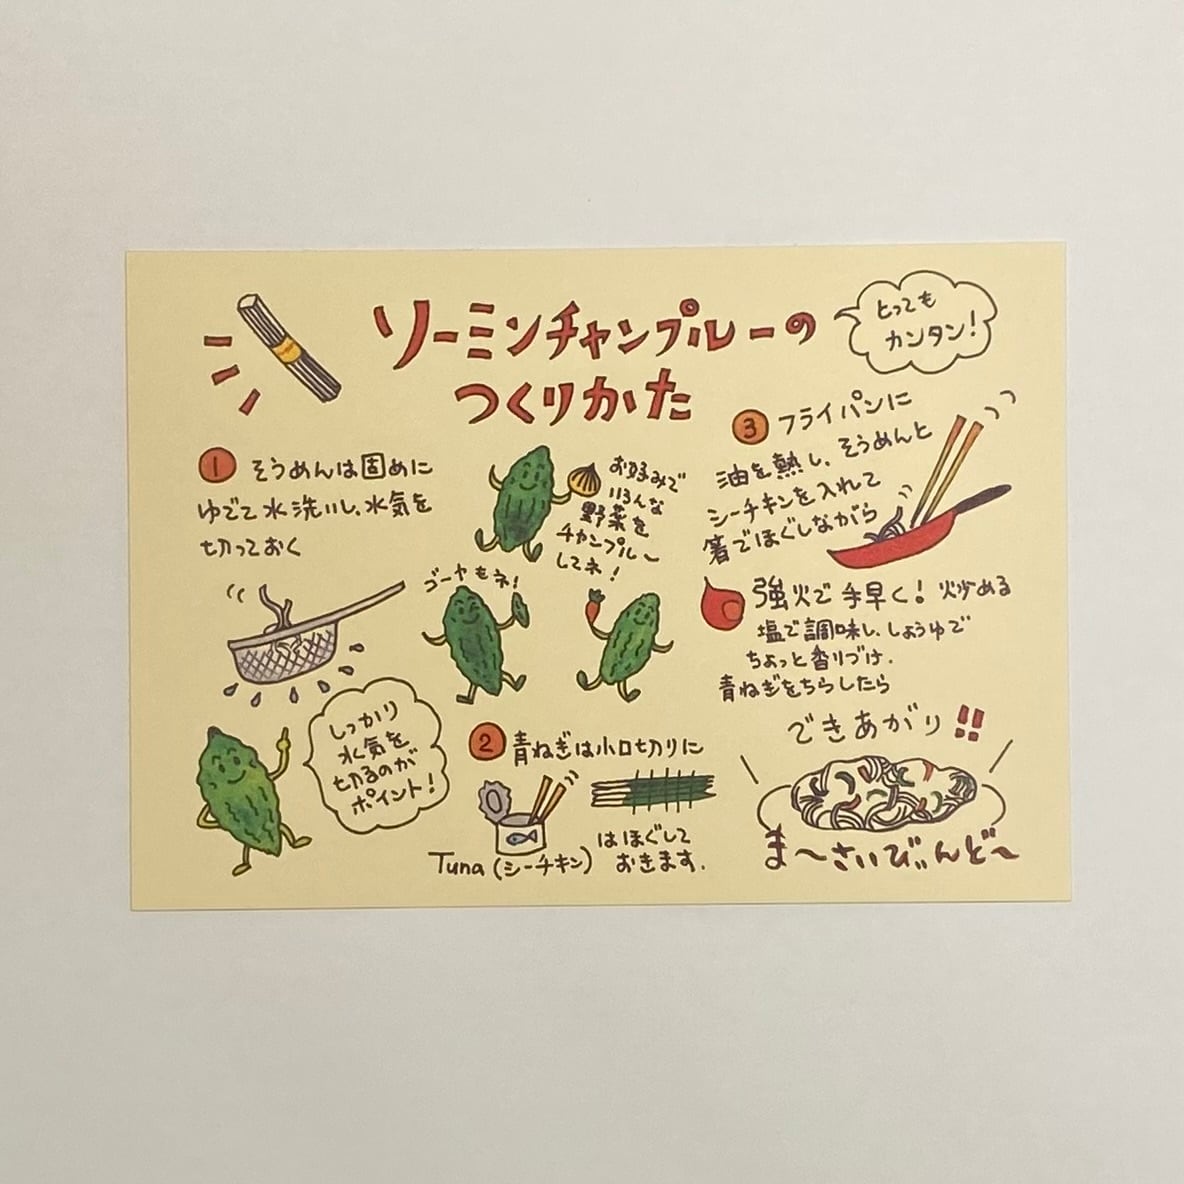 ソーミンチャンプルーの
つくりかた
とっても
カンタン!
1 そうめんは固めに
ゆでて水洗いし、水気を
切っておく
しっかり
水気を
切るのが
ポイント!
お好みで
いろんな
野菜を
チャンプルー
してネ!
ゴーヤもネ!
2 青ねぎは小口切りに
Tuna (シーチキン)
はほぐして
おきます.
3 フライパンに
油を熱し、そうめんと
シーチキンを入れて
箸でほぐしながら
強火で手早く!炒める
塩で調味し、しょうゆで
ちょっと香りづけ.
青ねぎをちらしたら
できあがり!!
ま〜さいびんど〜